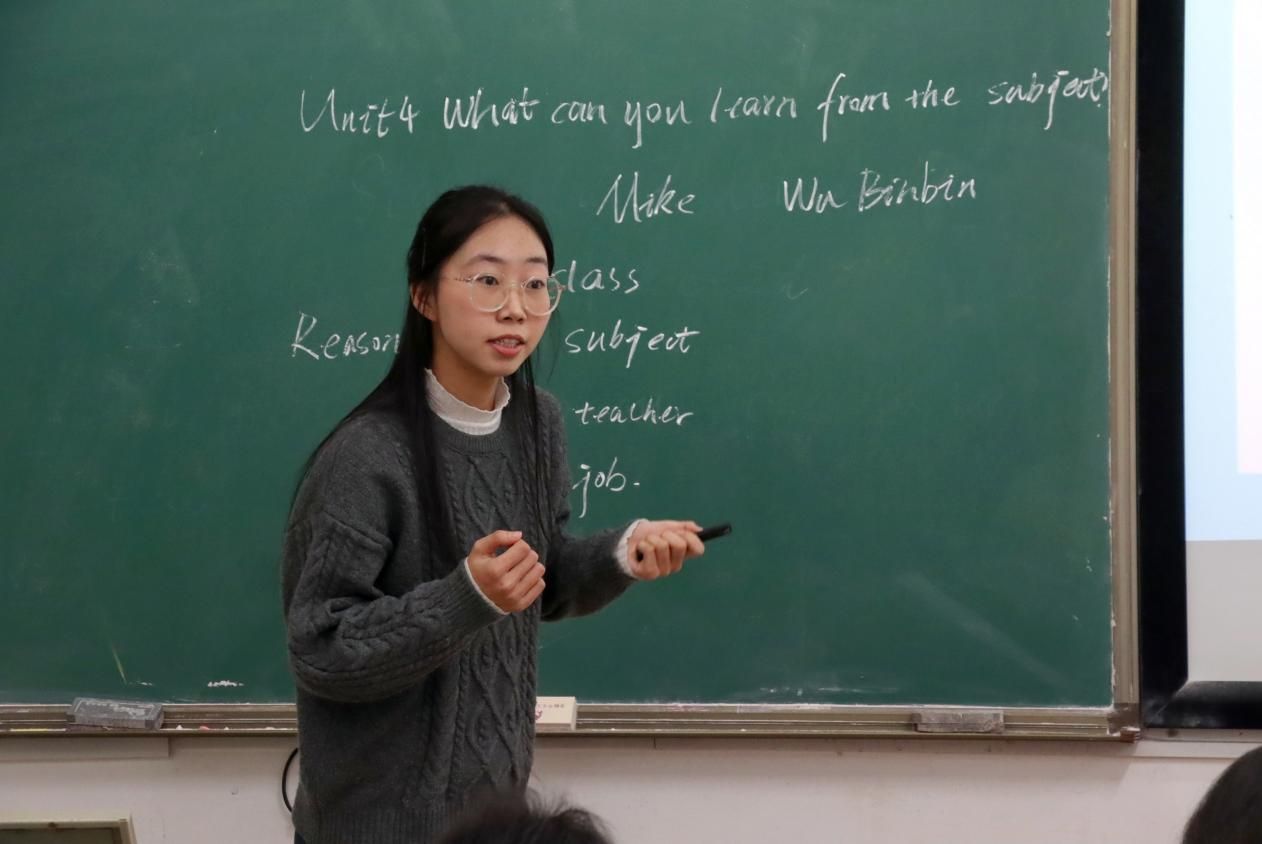 Unit4 What can you learn from the subject?
Mike Wu Binbin
class
Reason subject
teacher
job.